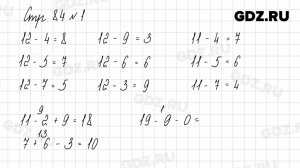 Стр 84 № 1
GDZ.RU
12 - 4 = 8 12 - 9 = 3 11 - 4 = 7
12 - 5 = 7 12 - 6 = 6 11 - 5 = 6
12 - 7 = 5 12 - 3 = 9 11 - 7 = 4
9 1
11 - 2 + 9 = 18 19 - 9 - 0 =
13
7 + 6 - 3 = 10